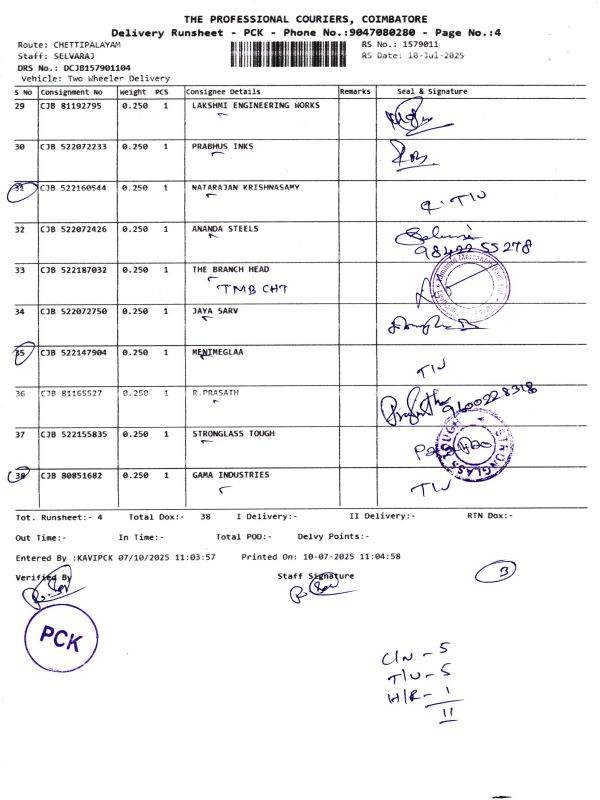 THE PROFESSIONAL COURIERS, COIMBATORE
Delivery Runsheet - PCK - Phone No.:9047080280 - Page No.:4
Route: CHETTIPALAYAM RS No.: 1579011
Staff: SELVARAJ RS Date: 10-Jul-2025
DRS No.: DCJB157901104
Vehicle: Two Wheeler Delivery
S No Consignment No Weight PCS Consignee Details Remarks Seal & Signature
29 CJB 81192795 0.250 1 LAKSHMI ENGINEERING WORKS
30 CJB 522072233 0.250 1 PRABHUS INKS
31 CJB 522160544 0.250 1 NATARAJAN KRISHNASAMY
32 CJB 522072426 0.250 1 ANANDA STEELS
9842255278
33 CJB 522187032 0.250 1 THE BRANCH HEAD
TMB CHT
34 CJB 522072750 0.250 1 JAYA SARV
35 CJB 522147904 0.250 1 MENIMEGLAA
T/U
36 CJB 81165527 0.250 1 R.PRASATH
9600228318
37 CJB 522155835 0.250 1 STRONGLASS TOUGH
STRONGLASS TOUGH
38 CJB 80851682 0.250 1 GAMA INDUSTRIES
T/U
Tot. Runsheet:- 4 Total Dox:- 38 I Delivery:- II Delivery:- RTN Dox:-
Out Time:- In Time:- Total POD:- Delvy Points:-
Entered By :KAVIPCK 07/10/2025 11:03:57 Printed On: 10-07-2025 11:04:58
Verified By Staff Signature
3
PCK
C/N - 5
T/U - 5
H/R - 1
11